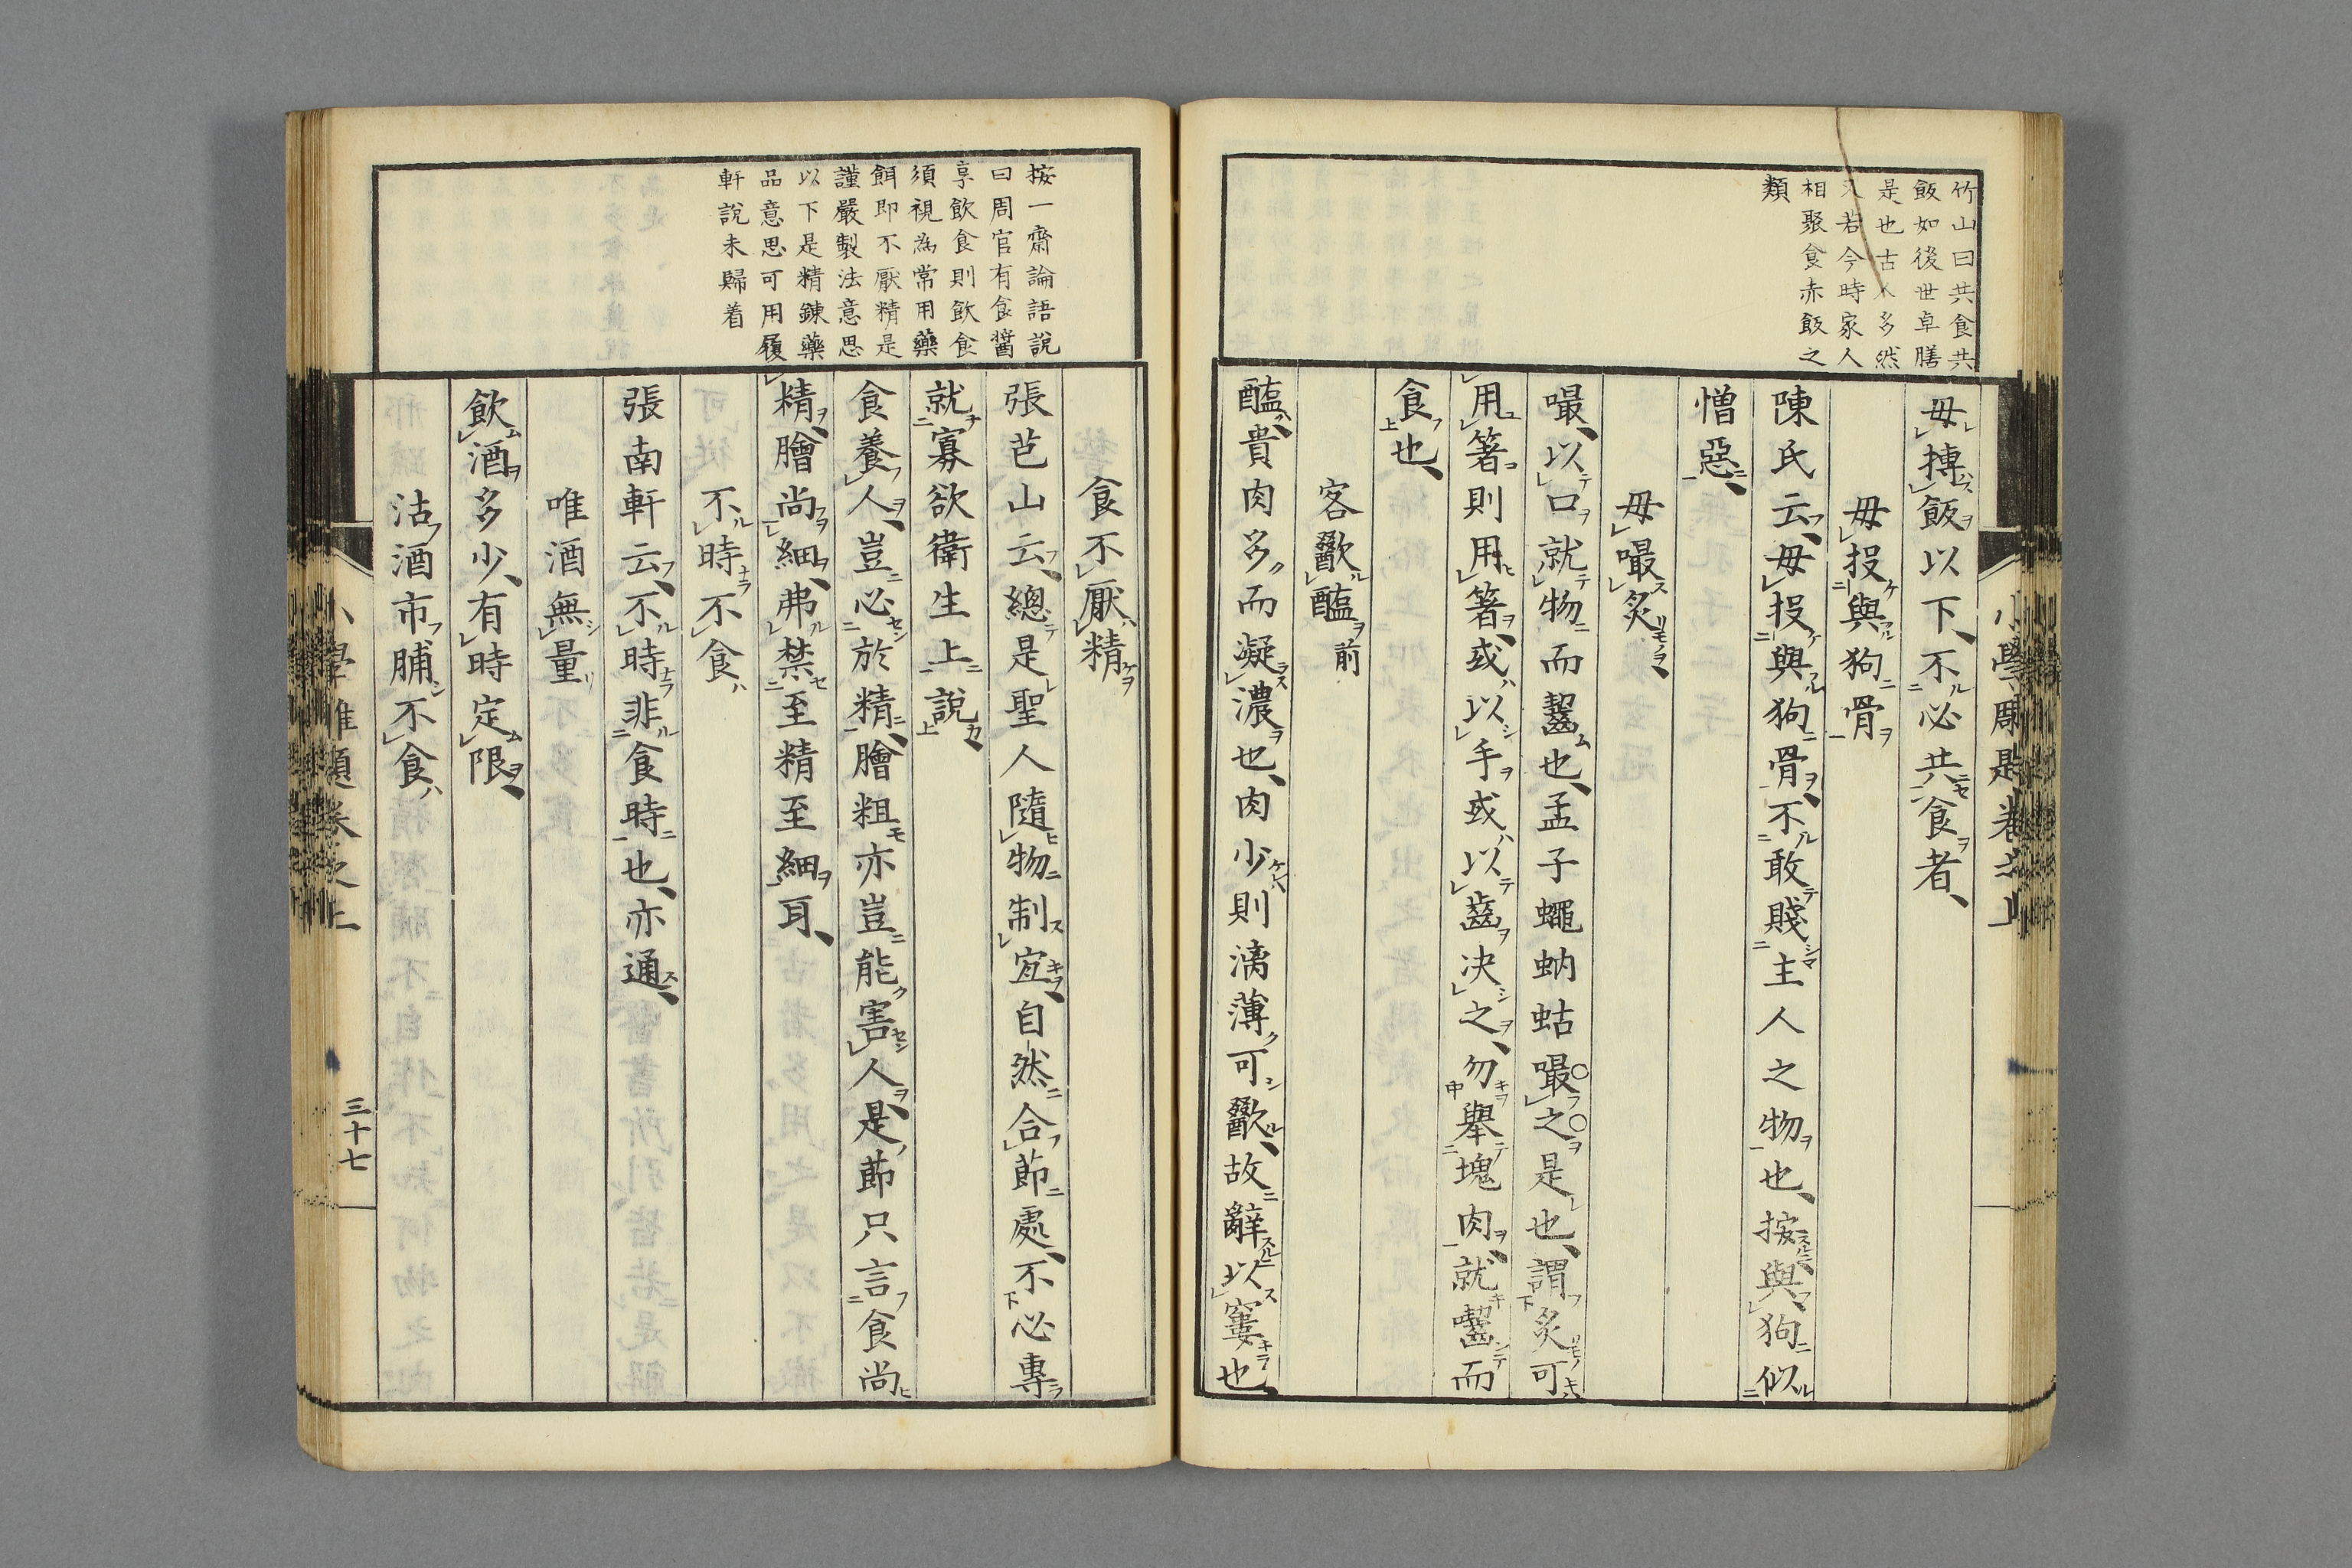 竹山曰共食共
飯如後世卓膳
是也古人多然
又若今時家人
相聚食赤飯之
類
毋摶飯以下、不必共食者、
毋投與狗骨
陳氏云、毋投與狗骨、不敢賤主人之物也、按與狗似
憎惡、
毋嘬炙
嘬、以口就物而齧也、孟子蠅蚋蛄嘬之是也、謂炙可
用箸則用箸、或以手或以齒決之、勿舉塊肉、就齧而
食也、
客歠醢前
醢、貴肉多而凝濃也、肉少則漓薄可歠、故辭以窶也、
按一齋論語說
曰周官有食醬
享飲食則飲食
須視為常用藥
餌即不厭精是
謹嚴製法意思
以下是精錬藥
品意思可用履
軒說未歸着
食不厭精
張芭山云、總是聖人隨物制宜、自然合節處、不必專
就寡欲衛生上說、
食養人、豈必於精、膾粗亦豈能害人、是節只言食尚
精、膾尚細、弗禁至精至細耳、
不時不食
張南軒云、不時非食時也、亦通、
唯酒無量
飲酒多少、有時定限、
沽酒市脯不食
三十七